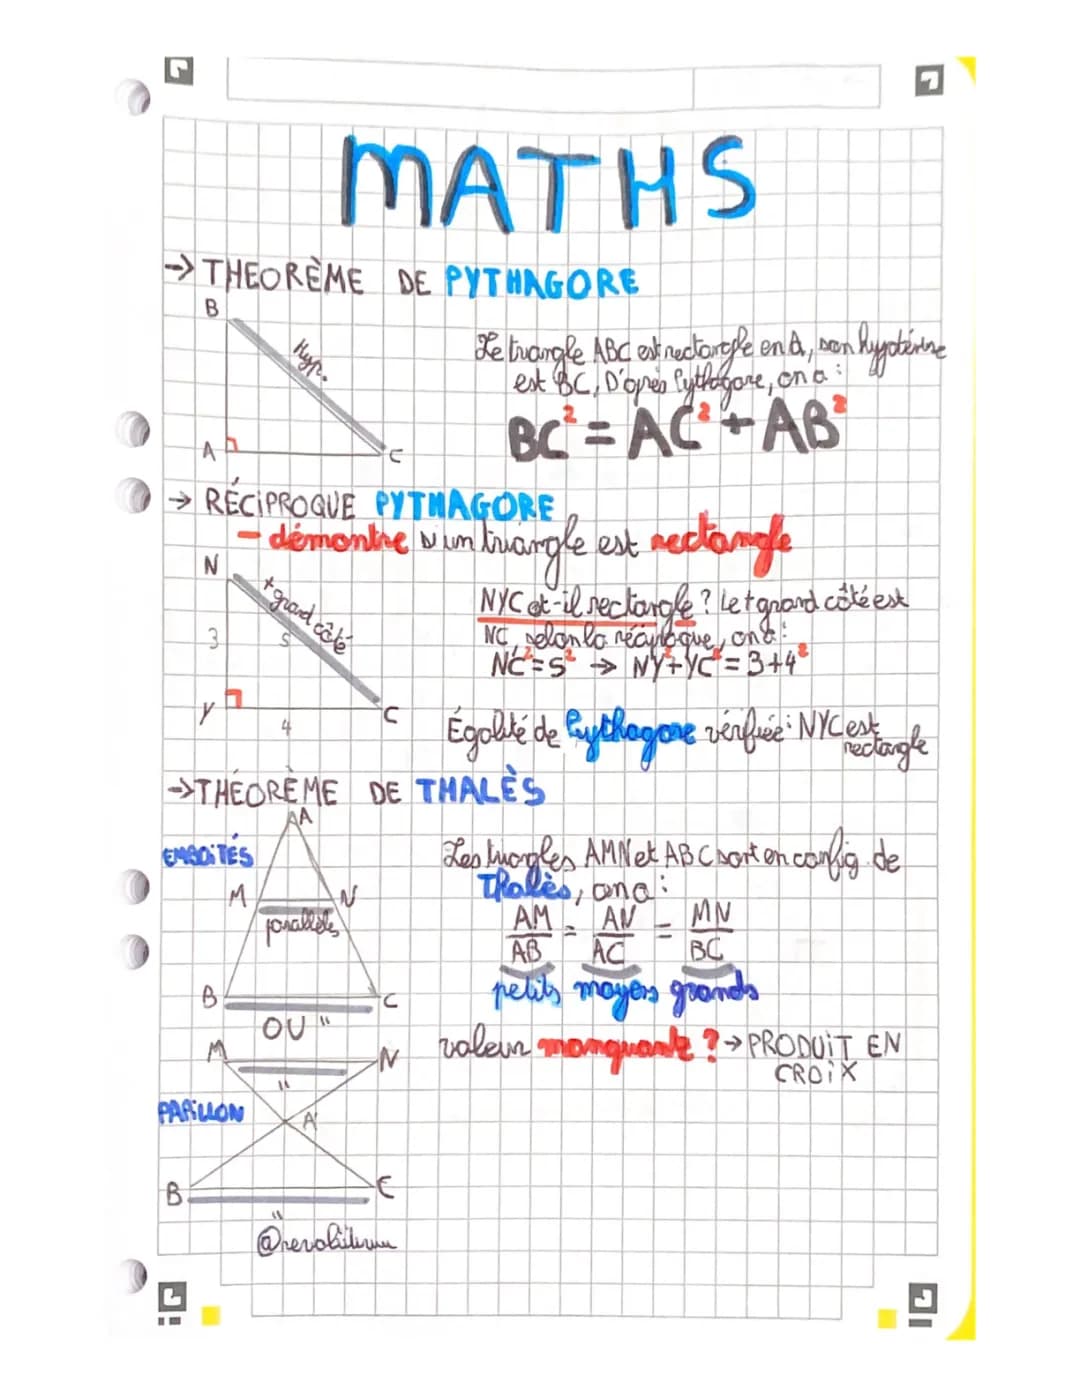 MATHS
→ THEORÈME DE PYTHAGORE
B
Hyp.
A
C
Le triangle ABC est rectangle en A, son hypoténine
est BC, D'après Pythagore, on a :
BC² = AC² + AB²
→ RÉCIPROQUE PYTHAGORE
- démontre si un triangle est rectangle
N
+ grand côté
3
5
Y
4
C
NYC est-il rectangle ? Le + grand côté est
NC, selon la réciproque, on a :
NC² = 5² → NY² + YC² = 3 + 4²
Égalité de Pythagore vérifiée : NYC est
rectangle
→ THÉORÈME DE THALÈS
EMBOITÉS
A
M
N
parallèles
B
C
OU "
M
N
"
PAPILLON
A
B
C
"
Les triangles AMN et ABC sont en config. de
Thalès, on a :
AM = AN = MN
AB AC BC
petits moyens grands
valeur manquante ? → PRODUIT EN
CROIX